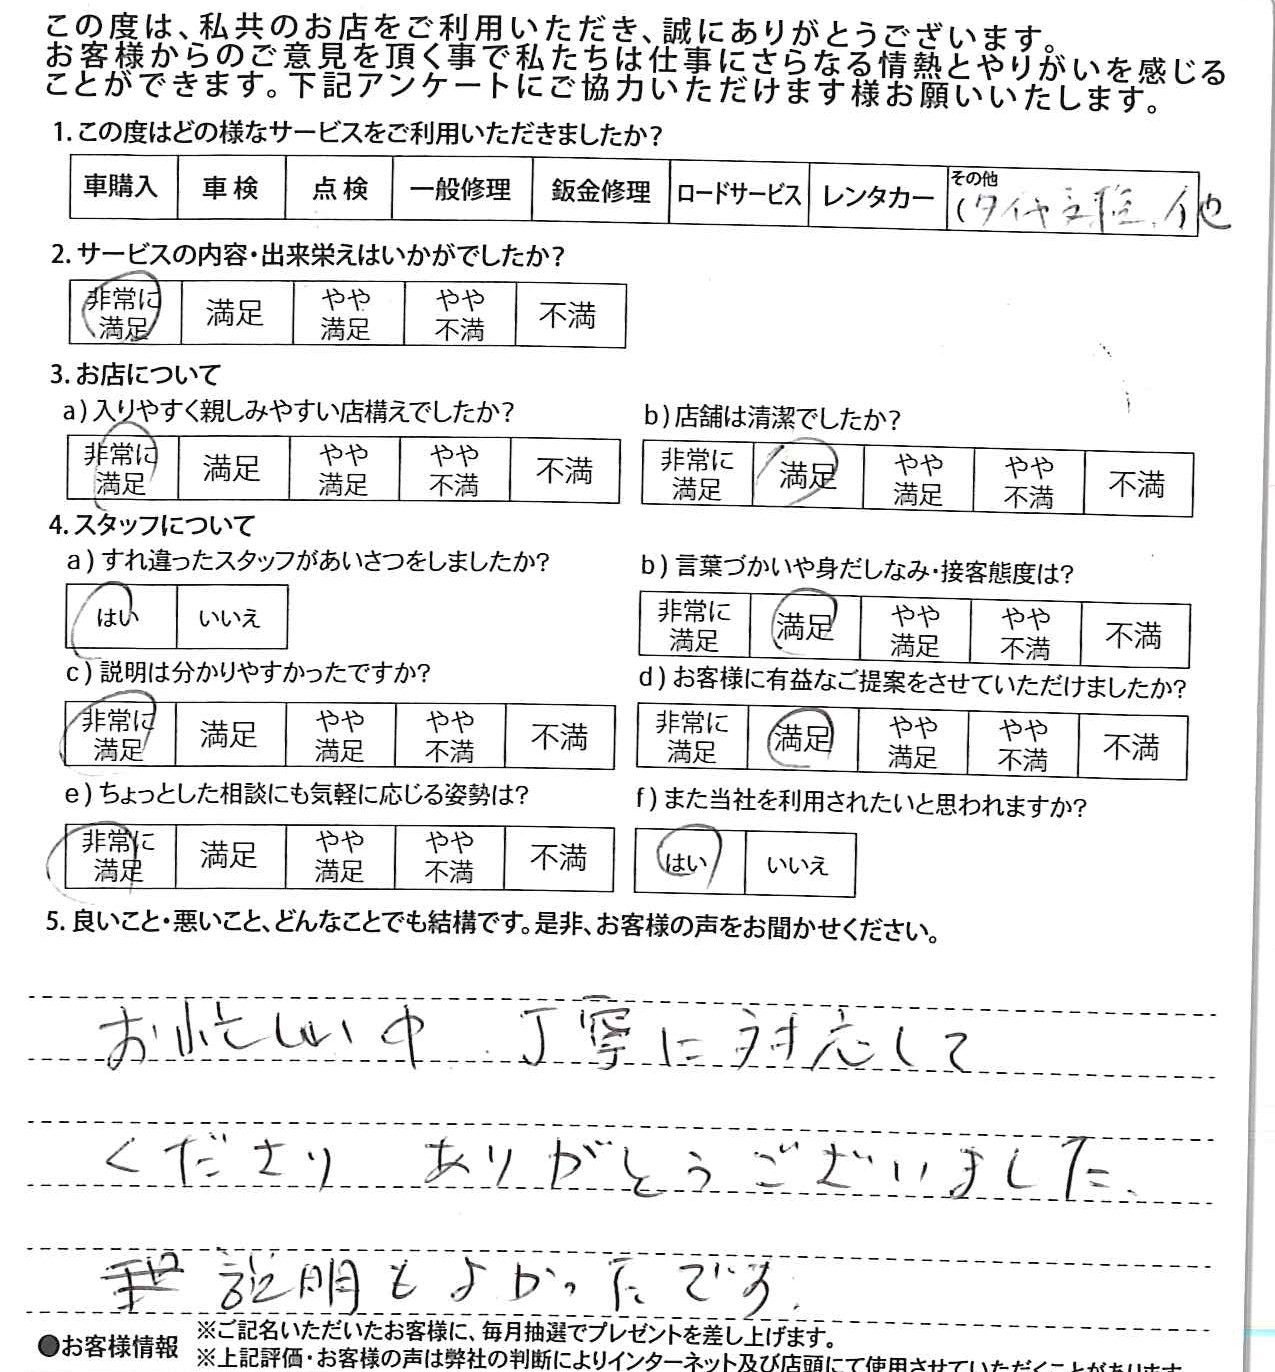 この度は、私共のお店をご利用いただき、誠にありがとうございます。
お客様からのご意見を頂く事で私たちは仕事にさらなる情熱とやりがいを感じる
ことができます。下記アンケートにご協力いただけます様お願いいたします。
1.この度はどの様なサービスをご利用いただきましたか?
車購入 車検 点検 一般修理 鈑金修理 ロードサービス レンタカー その他
(タイヤ 他
2.サービスの内容・出来栄えはいかがでしたか?
非常に満足 満足 やや満足 やや不満 不満
3.お店について
a)入りやすく親しみやすい店構えでしたか? b)店舗は清潔でしたか?
非常に満足 満足 やや満足 やや不満 不満 非常に満足 満足 やや満足 やや不満 不満
4.スタッフについて
a)すれ違ったスタッフがあいさつをしましたか? b)言葉づかいや身だしなみ・接客態度は?
はい いいえ 非常に満足 満足 やや満足 やや不満 不満
c)説明は分かりやすかったですか? d)お客様に有益なご提案をさせていただけましたか?
非常に満足 満足 やや満足 やや不満 不満 非常に満足 満足 やや満足 やや不満 不満
e)ちょっとした相談にも気軽に応じる姿勢は? f)また当社を利用されたいと思われますか?
非常に満足 満足 やや満足 やや不満 不満 はい いいえ
5.良いこと・悪いこと、どんなことでも結構です。是非、お客様の声をお聞かせください。
お忙しい中 丁寧に対応して
くださり ありがとうございました。
説明もよかったです。
●お客様情報 ※ご記名いただいたお客様に、毎月抽選でプレゼントを差し上げます。
※上記評価・お客様の声は弊社の判断によりインターネット及び店頭にて使用させていただくことがあります